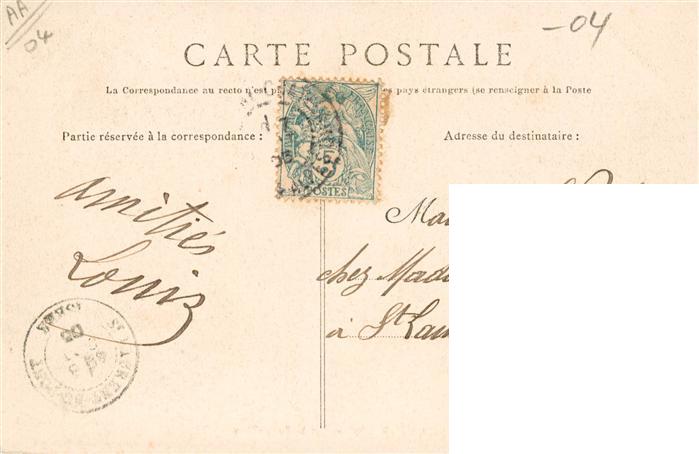 AA
04
-04
CARTE POSTALE
La Correspondance au recto n'est pays étrangers (se renseigner à la Poste
Partie réservée à la correspondance :
Adresse du destinataire :
POSTES
amitiés
Louis
chez
à St
ST LAURENT-DU-PONT
ISERE